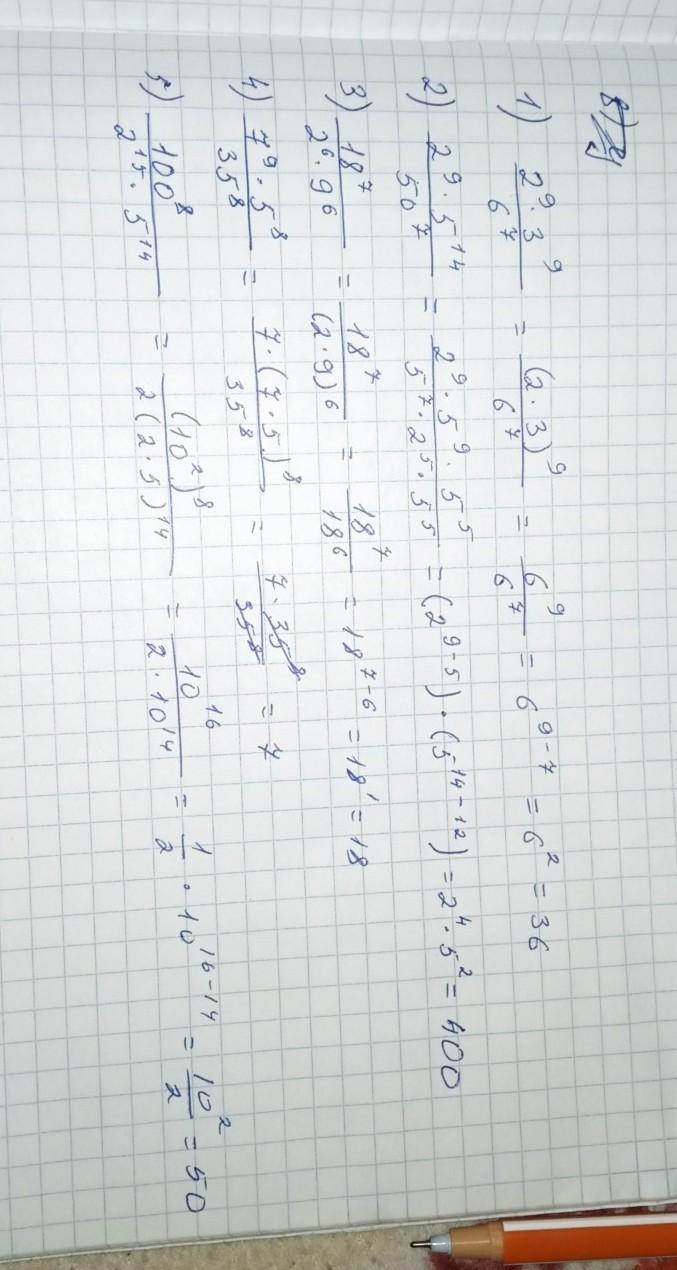 1) \frac{2^9 \cdot 3^9}{6^7} = \frac{(2 \cdot 3)^9}{6^7} = \frac{6^9}{6^7} = 6^{9-7} = 6^2 = 36
2) \frac{2^9 \cdot 5^{14}}{50^7} = \frac{2^9 \cdot 5^9 \cdot 5^5}{5^7 \cdot 2^5 \cdot 5^5} = (2^{9-5}) \cdot (5^{14-12}) = 2^4 \cdot 5^2 = 400
3) \frac{18^7}{2^6 \cdot 9^6} = \frac{18^7}{(2 \cdot 9)^6} = \frac{18^7}{18^6} = 18^{7-6} = 18^1 = 18
4) \frac{7^9 \cdot 5^8}{35^8} = \frac{7 \cdot (7 \cdot 5)^8}{35^8} = \frac{7 \cdot 35^8}{35^8} = 7
5) \frac{100^8}{2^{15} \cdot 5^{14}} = \frac{(10^2)^8}{2(2 \cdot 5)^{14}} = \frac{10^{16}}{2 \cdot 10^{14}} = \frac{1}{2} \cdot 10^{16-14} = \frac{10^2}{2} = 50